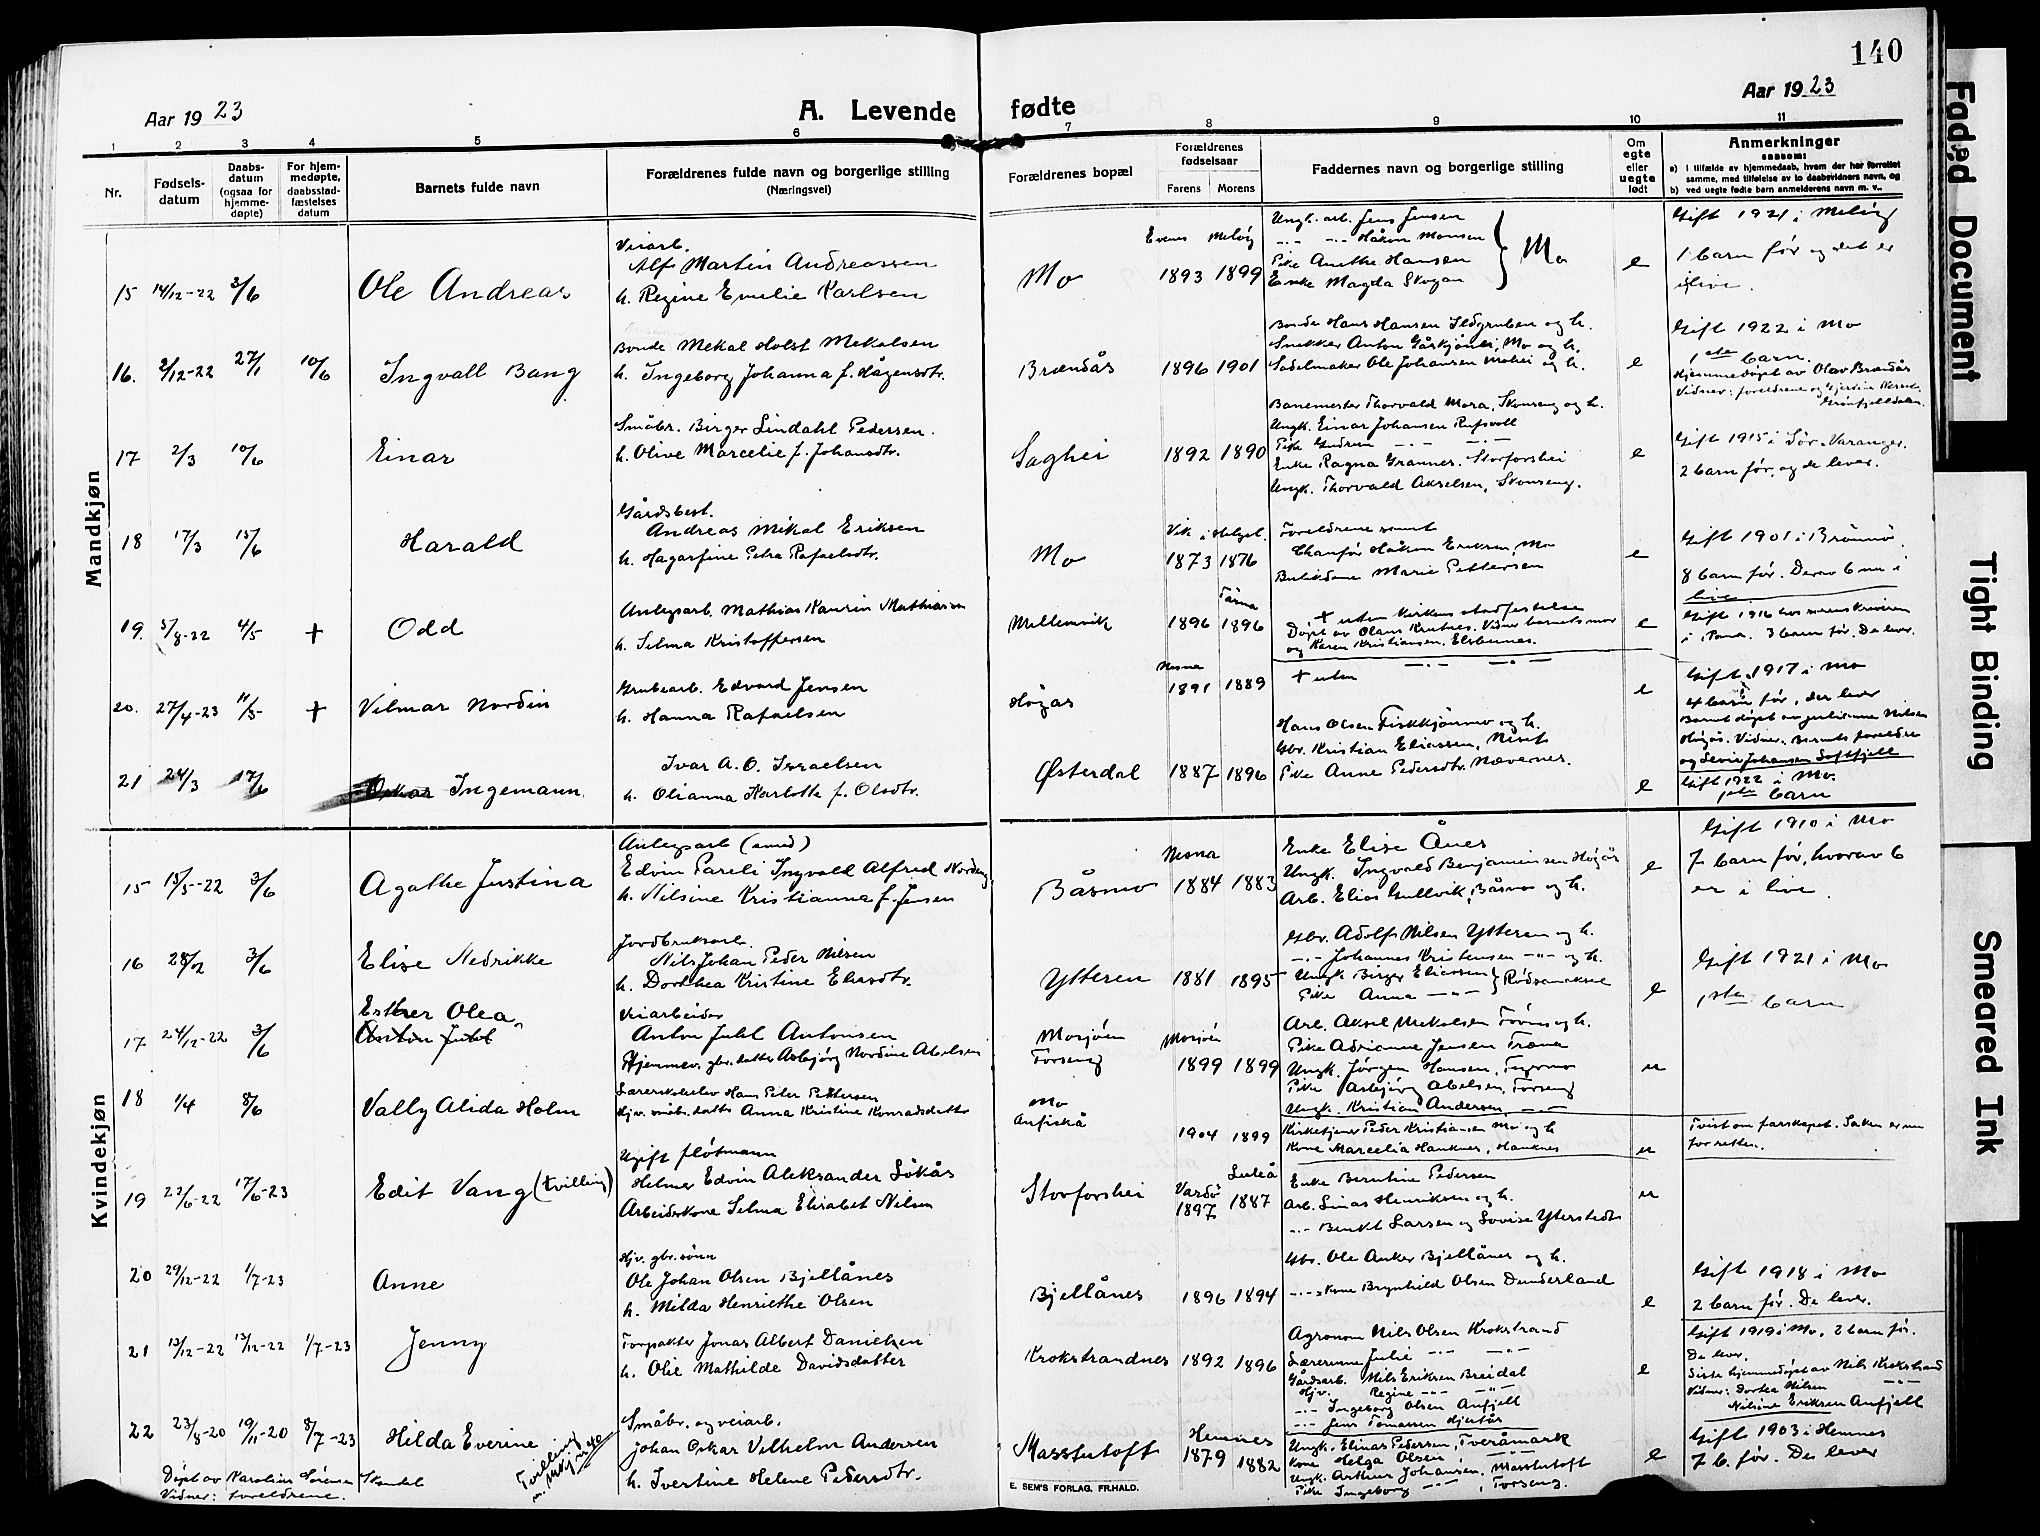 140
Aar 1923
A. Levende fødte
Aar 1923
1 2 3 4 5 6 7 8 9 10 11
Nr.
Fødsels-datum
Daabs-datum (ogsaa for hjemme-døpte)
For hjem-medøpte, daabsstad-fæstelses datum
Barnets fulde navn
Forældrenes fulde navn og borgerlige stilling
(Næringsvei)
Forældrenes bopæl
Forældrenes fødselsaar
Farens Morens
Faddernes navn og borgerlige stilling
Om egte eller uegte født
Anmerkninger
saasom:
a) i tilfælde av hjemmedaab, hvem der har forrettet samme, med tilføielse av to daabsvidners navn, og
b) ved uegte fødte barn anmelderens navn m. v..
Mandkjøn
15 14/12-22 3/6 Ole Andreas
Veiarb.
Alf Martin Andreassen
h. Regine Emelie Karlsen
Mo
Evenes Meløy
1893 1899
Ungk. arb. Jens Jensen
-"- -"- Håkon Monsen
Pike Anethe Hansen
Enke Magda Skogan
Mo
e
Gift 1921 i Meløy
1 barn før og det er
ilive.
16. 2/12-22 27/1 10/6 Ingvall Bang
Bonde Mekal Holst Mekalsen
h. Ingeborg Johanna f. Hågensdtr.
Brændås
1896 1901
Bonde Hans Hansen Ildgruben og h.
Snekker Anton Gåskjønli, Mo og h.
Sadelmaker Ole Johansen Mohei og h.
e
Gift 1922 i Mo
1ste barn.
Hjemmedøpt av Olav Brændås
Vidner: foreldrene og
Grønfjelldalen.
17 2/3 10/6 Einar
Småbr. Birger Lindahl Pedersen.
h. Olive Marcelie f. Johansdtr.
Saghei
1892 1890
Banemester Thorvald Mora, Skonseng og h.
Ungk. Einar Johansen Rufsvoll
Pike Gudrun -"- -"-
Enke Ragna Granner. Storforshei
Ungk. Thorvald Akselsen, Skonseng.
e
Gift 1915 i Sør-Varanger.
2 barn før, og de lever.
18 17/3 15/6 Harald
Gårdsbest.
Andreas Mikal Eriksen
h. Hagarfine Petra Rafaelsdtr.
Mo
Vik i Helgel.
1873 1876
Foreldrene samt
Chauffør Håkon Eriksen, Mo
Butikdame Marie Pettersen
e
Gift 1901 i Brønnø
8 barn før. Derav 6 nu i
live
19. 5/8-22 4/5 + Odd
Anlegsarb. Mathias Kaurin Mathiassen
h. Selma Kristoffersen
Mellemvik
Tärna
1896 1896
+ uten kirkens stadfestelse
Døpt av Olaus Krutnes. Vidner barnets mor
og Karen Kristiansen, Elsbernes.
e
Gift 1916 hos sorenskriveren
i Rana. 3 barn før. De lever.
20. 27/4-23 11/5 + Vilmar Nordin
Grubearb. Edvard Jensen
h. Hanna Rafaelsen
Høgås
Nesna
1891 1889
+ uten -"- -"-
e
Gift 1917 i Mo
4 barn før, der lever
Barnet døpt av Juliane Nilsen
Høgås. Vidner: Barnets foreldre
og Levis Johansen Softfjell
21 24/3 17/6 Oskar Ingemann.
Ivar A. O. Israelsen
h. Olianna Karlotte f. Olsdtr.
Østerdal
1887 1896
Hans Olsen Fiskkjønmo og h.
Gbr. Kristian Eliassen,
Pike Anne Pedersdtr. Nævernes.
e
Gift 1922 i Mo.
1ste barn
Kvindekjøn
15 15/5-22 3/6 Agathe Justina
Anlegsarb (smed)
Edvin Pareli Ingvald Alfred Nordeng
h. Nilsine Kristianna f. Jensen
Båsmo
Nesna
1884 1883
Enke Elise Ånes
Ungk. Ingvald Benjaminsen Høgås
Arb. Elias Gullvik, Båsmo og h.
e
Gift 1910 i Mo
7 barn før, hvorav 6
er i live
16 28/2 3/6 Elise Nedrikke
Jordbruksarb.
Nils Johan Peder Nilsen
h. Dorthea Kristine Eliasdtr.
Ytteren
1881 1895
Gbr. Adolf Nilsen Ytteren og h.
-"- Johannes Kristensen -"- og h.
Ungk Birger Eliassen
Pike Anna -"-
e
Gift 1921 i Mo
1ste barn
17 24/12-22 3/6 Esther Olea
Anton Juhl
Veiarbeider
Anton Juhl Antonsen
Hjemmev. gbr. datter Asbjørg Nordine Abelsen
Mosjøen
Forseng
Mosjøen
1899 1899
Arb. Aksel Mekalsen
Pike Adrianne Jensen Træna
Ungk. Jørgen Hansen,
Pike Asbjørg Abelsen, Forseng
Ungk. Kristian Andersen -"-
u
18 1/4 8/6 Vally Alida Holm
Lærerskoleelev Hans Peter Pettersen
Hjv. småbr. datts Anna Kristine Konradsdatter
Mo
Anfiskå
1904 1899
Kirketjener Peder Kristiansen Mo og h
Kone Marcelia Hauknes, Hauknes
u
Tvist om farskapet. Saken er nu
for retten.
19 22/6-22 17/6-23 Edit Vang (tvilling)
Ugift fløtmann
Helmer Edvin Aleksander Løkås
Arbeiderkone Selma Elisabet Nilsen
Storforshei
Vardø Luleå
1897 1887
Enke Berntine Pedersen
Arb. Linas Henriksen og h.
-"- Benkt Larssen og Lovise Yterstedts
u
20 29/12-22 1/7-23 Anne
Hjv. gbr. sønn
Ole Johan Olsen Bjellånes
h. Milda Henriethe Olsen
Bjellånes
1896 1894
Gbr. Ole Anker Bjellånes og h.
-"- Kone Brynhild Olsen Dunderland
e
Gift 1918 i Mo
2 barn før. De lever.
21 13/12-22 13/12-22 1/7-23 Jenny
Forpakter Jonas Albert Danielsen
h. Olie Mathilde Davidsdatter
Krokstrandnes
1892 1896
Agronom Nils Olsen Krokstrand
Lærerinne Julie -"- -"-
Gårdsarb. Nils Eriksen Breidal
Hjv. Regine -"- -"-
-"- Ingeborg Olsen Anfjell
-"- Jens Tomassen Hjertås
e
Gift 1919 i Mo. 2 barn før.
De lever.
Siste hjemmedøpt av Nils Krokstrand
Vidner: Dortea Nilsen -"-
Nilsine Eriksen Anfjell
22 23/8-20 19/11-20 8/7-23 Hilda Everine
Tvilling
m. Mkj nr 40
Døpt av Karolius Sørensen
Vidner: foreldrene.
Småbr. og veiarb.
Johan Oskar Vilhelm Andersen
h. Ivertine Helene Pedersdtr.
Masstutoft
Hemnes
1879 1882
Ungk. Elinas Pedersen, Tveråmark
Kone Helga Olsen -"-
Ungk. Arthur Johansen, Masstutoft
Pike Ingeborg -"-, Forseng.
e
Gift 1903 i Hemnes
7 b. før. De lever
E. SEM'S FORLAG. FR.HALD.
Faded Document
Tight Binding
Smeared Ink